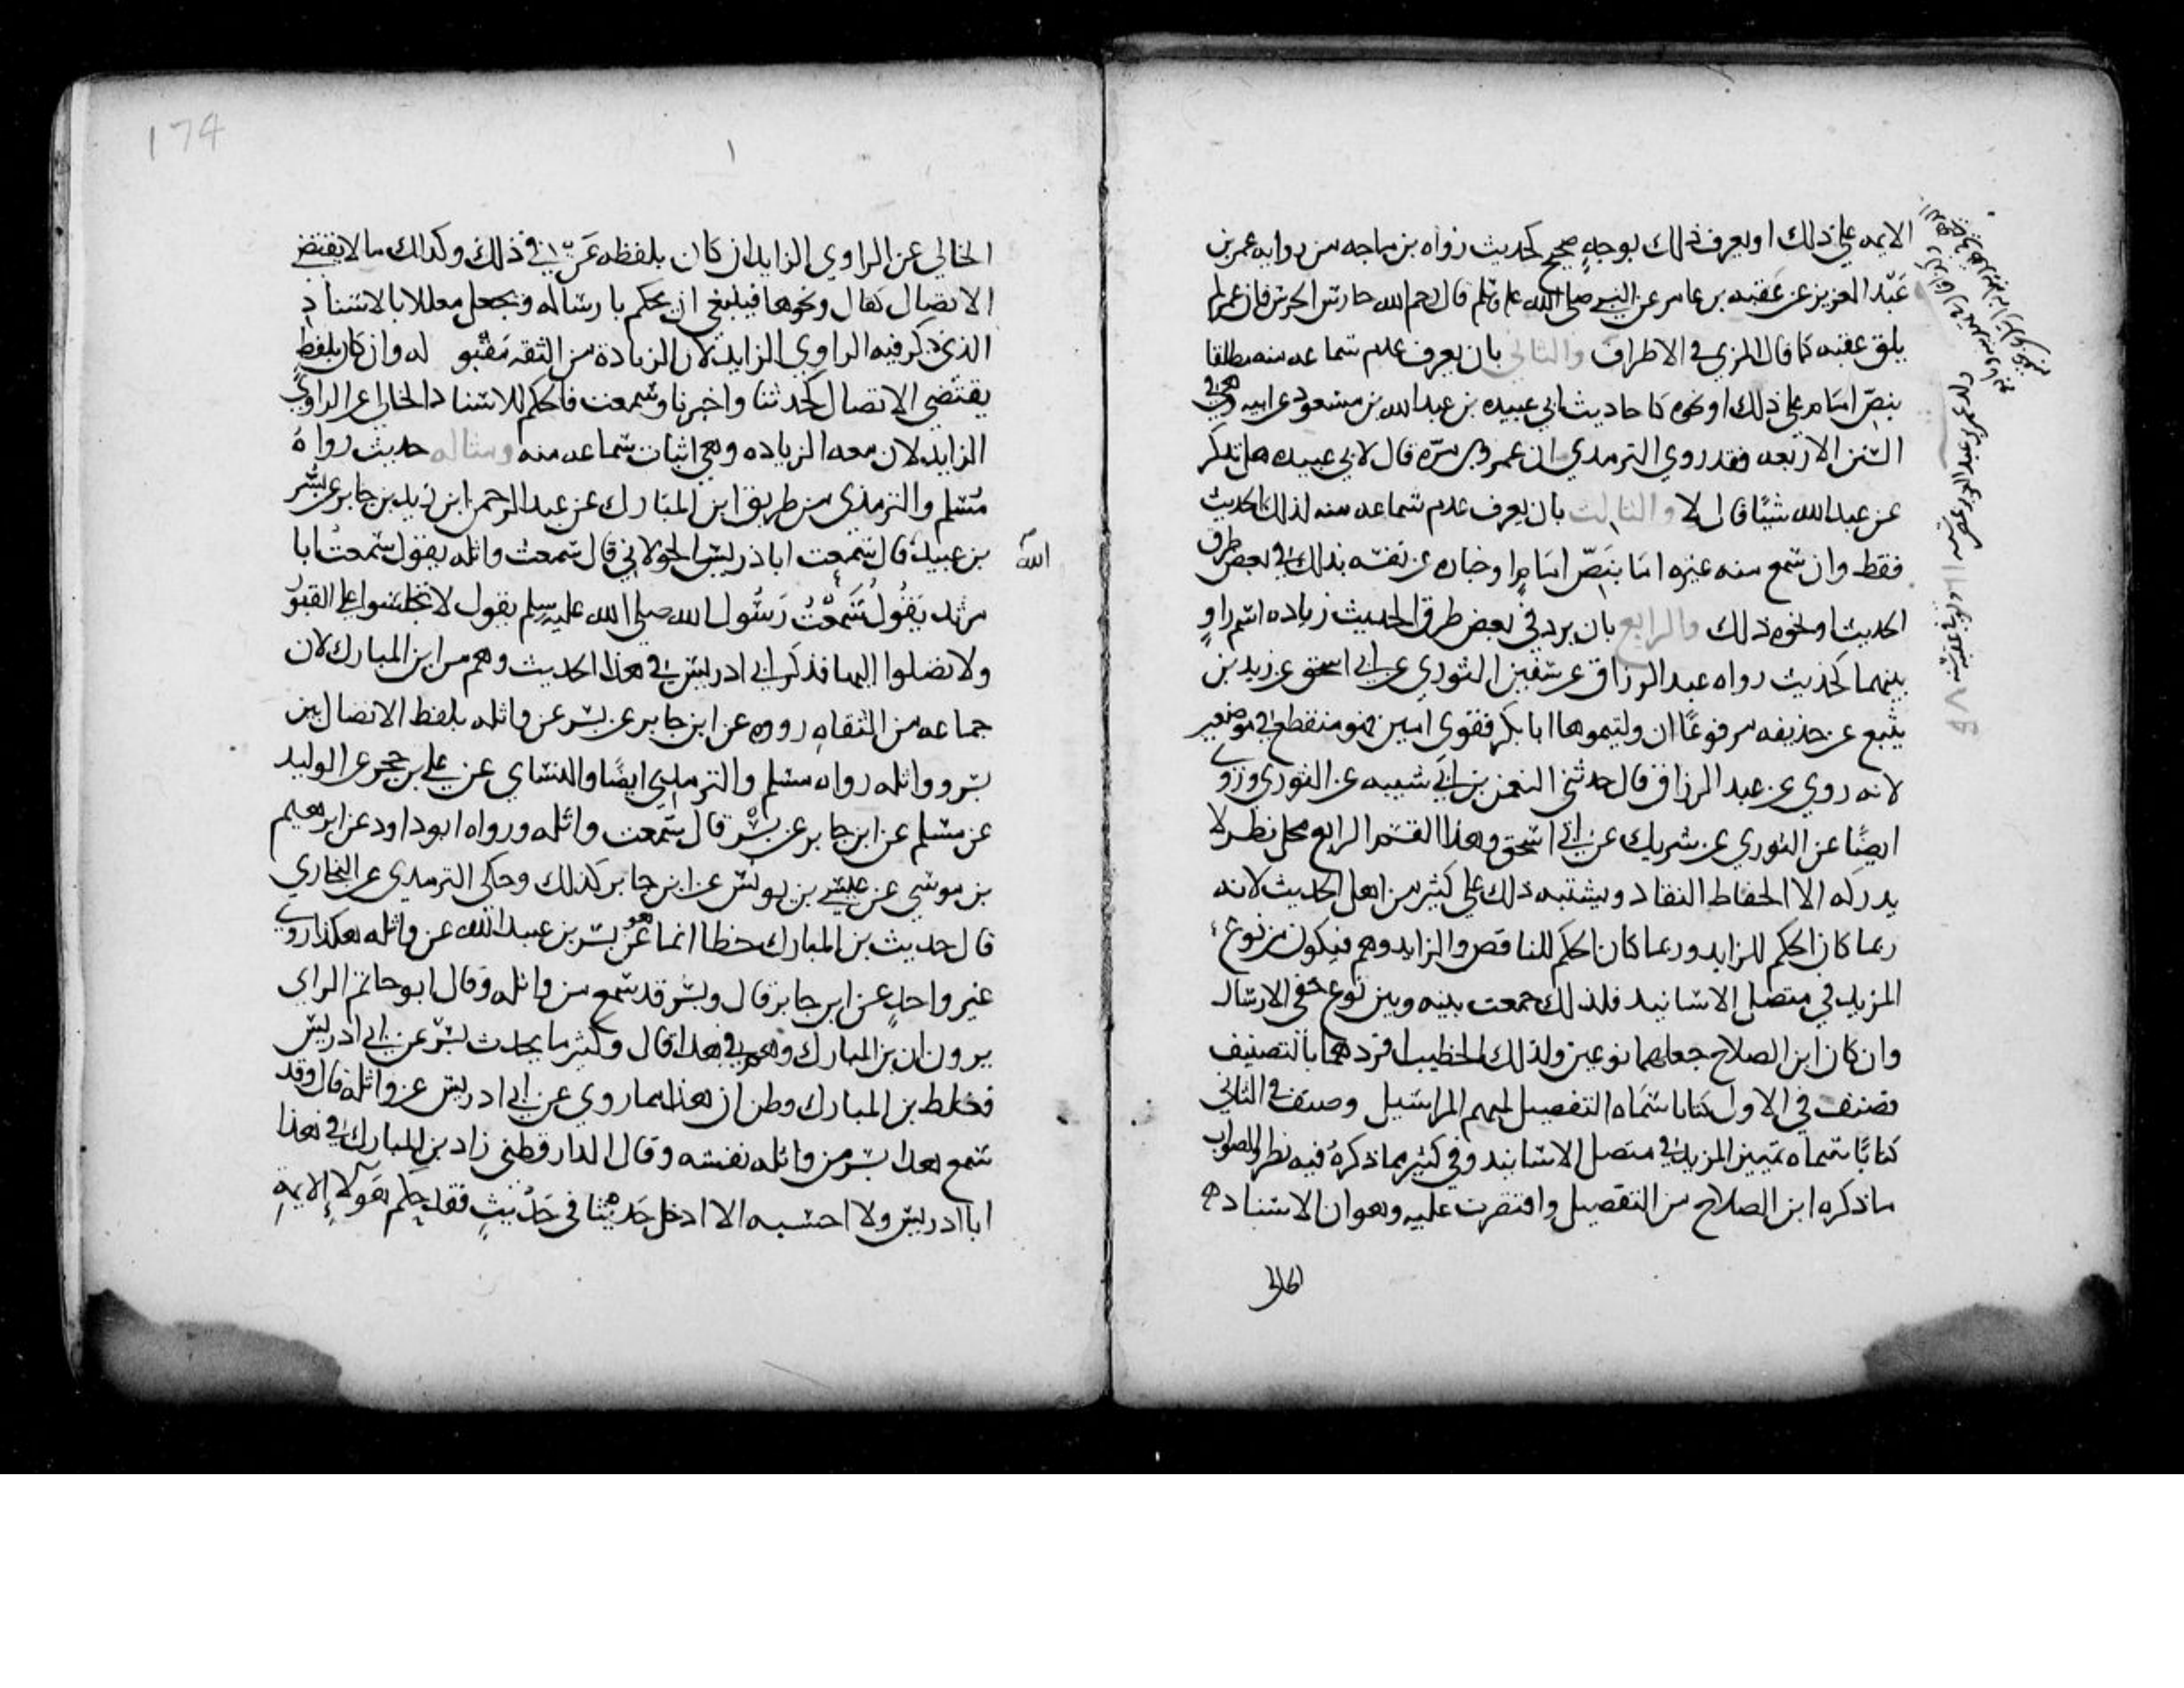 الايمه علي ذلك او يعرف ذلك بوجهٍ صحيح كحديث رواه بن ماجه من روايه عمر بن
عَبْد العزيز عن عقبه بن عامر عن النبي صلي الله عليه وسلم قال رحم الله حارس الحرس فان عمر لم
يلق عقبه كما قال المزي في الاطراف والثاني بان يعرف عدم سماعه منه مطلقا
بنصّ امام علي ذلك او نحوه كاحاديث ابي عبيده بن عبد الله بن مسعود عن ابيه وهي في
السنن الاربعه فقد روي الترمدي ان عمرو بن مرّه قال لابي عبيده هل تذكر
عن عبد الله شيئًا قال لا والثالث بان يعرف عدم سماعه منه لذلك الحديث
فقط وان سمع منه غيره اما بنَصّ امامٍ او اخباره عن نفسه بذلك في بعض طرق
الحديث او نحو ذلك والرابع بان يرد في بعض طرق الحديث زياده اسم راوٍ
بينهما كحديث رواه عبد الرزاق عن سفين الثوري عن ابي اسحق عن زيد بن
يثيع عن حذيفه مرفوعًا ان وليتموها ابا بكر فقوي امين فهو منقطع في موضعين
لانه روي عن عبد الرزاق قال حدثني النعمن بن ابي شيبه عن الثوري وروي
ايضًا عن الثوري عن شريك عن ابي اسحق وهذا القسم الرابع محل نظر لا
يدركه الا الحفاط النقاد ويشتبه ذلك علي كثير من اهل الحديث لانه
ربما كان الحكم للزايد وربما كان الحكم للناقص والزايد وهم فيكون من نوع
المزيد في متصل الاسانيد فلذلك جمعت بينه وبين نوع خفي الارسال
وان كان ابن الصلاح جعلهما نوعين ولذلك الخطيب افردهما بالتصنيف
فصنف في الاول كتابا سَمَاه التفصيل لمبهم المراسيل وصنف في الثاني
كتابًا سماه تمييز المزيد في متصل الاسانيد وفي كثير مما ذكرهُ فيه نظر والصواب
ماذكره ابن الصلاح من التفصيل واقتصرت عليه وهو ان الاسناد
الخالي
الخالي عن الراوي الزايد ان كان بلفظه عَنّ في ذلك وكدالك ما لا يقتضي
الاتصال كقال ونحوها فينبغي ان يحكم بارساله ويجعل معللا بالاسناد
الذي ذكر فيه الراوي الزايد لان الزيادة من الثقه مَقبو له وان كان بلفظ
يقتضي الاتصال كحدثنا واخبرنا وسمعت فالحكم للاسناد الخالي عن الراوي
الزايد لان معه الزياده وهي اثبات سماعه منه ومثاله حديث رواهُ
مُسْلم والترمذي من طريق ابن المبَارك عن عبد الرحمن ابن يزيد بن جابر عن بُسْر
بن عبيد قال سَمِعت ابا ادريس الخولاني قال سَمعت واثله يقول سَمعتُ ابا
الله
مرثد يَقُولُ سَمِعْتُ رَسُول الله صلي الله عليه وسلم يقول لا تجلسوا علي القبُوْر
ولا تصلوا اليها فذكر ابي ادريس في هذا الحديث وهم من ابن المبارك لان
جماعه من الثقاهِ رووه عن ابن جابر عن بسْر عن واثله بلفظ الاتصال بين
بسْر وواثله رواه مسلم والترمذي ايضًا والنساي عن علي بن حجر عن الوليد
عن مسلم عن ابن جابر عن بُسْر قال سَمعت واثله ورواه ابو داود عن ابرهيم
بن موسي عن عيسي بن يونس عن ابن جابر كذلك وحكي الترمدي عن البخاري
قال حديث بن المبارك خطا انما هو عَنْ بسْر بن عبيد الله عن واثله هكذا روي
غير واحدٍ عن ابن جابر قال وبسْر قد سَمع من واثله وقال ابو حاتم الرازي
يرون ان بن المبارك وهم في هذا قال وكثير ما يحدث بسْر عن ابي ادريس
فغلط بن المبارك وظن ان هذا مما روي عن ابي ادريس عن واثله قال وقد
سَمع هذا بسْر من واثله نفسه وقال الدارقطني زاد بن المبارك في هذا
ابا ادريس ولا احسبه الا ادخل حَديثا في حَديثٍ فقد حكم هَولاءِ الايمهِ
174